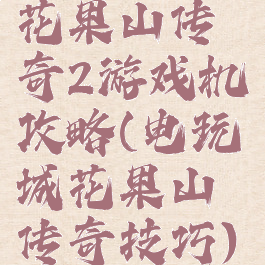 花果山传
奇2游戏机
攻略(电玩
城花果山
传奇技巧)